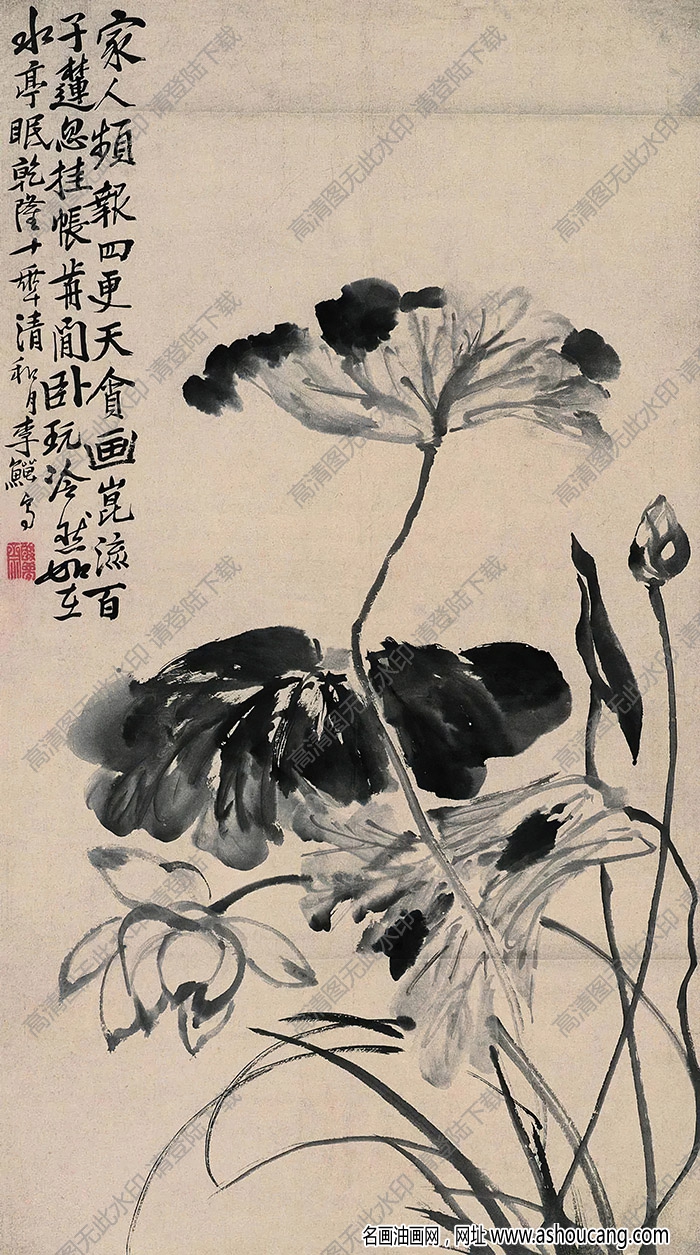 家人頻報四更天貪画崑流百
子蓮忽挂帳前閒卧玩冷然如在
水亭眠乾隆十年清和月李鱓写
高清图无此水印 请登陆下载
名画油画网，网址 www.ashoucang.com